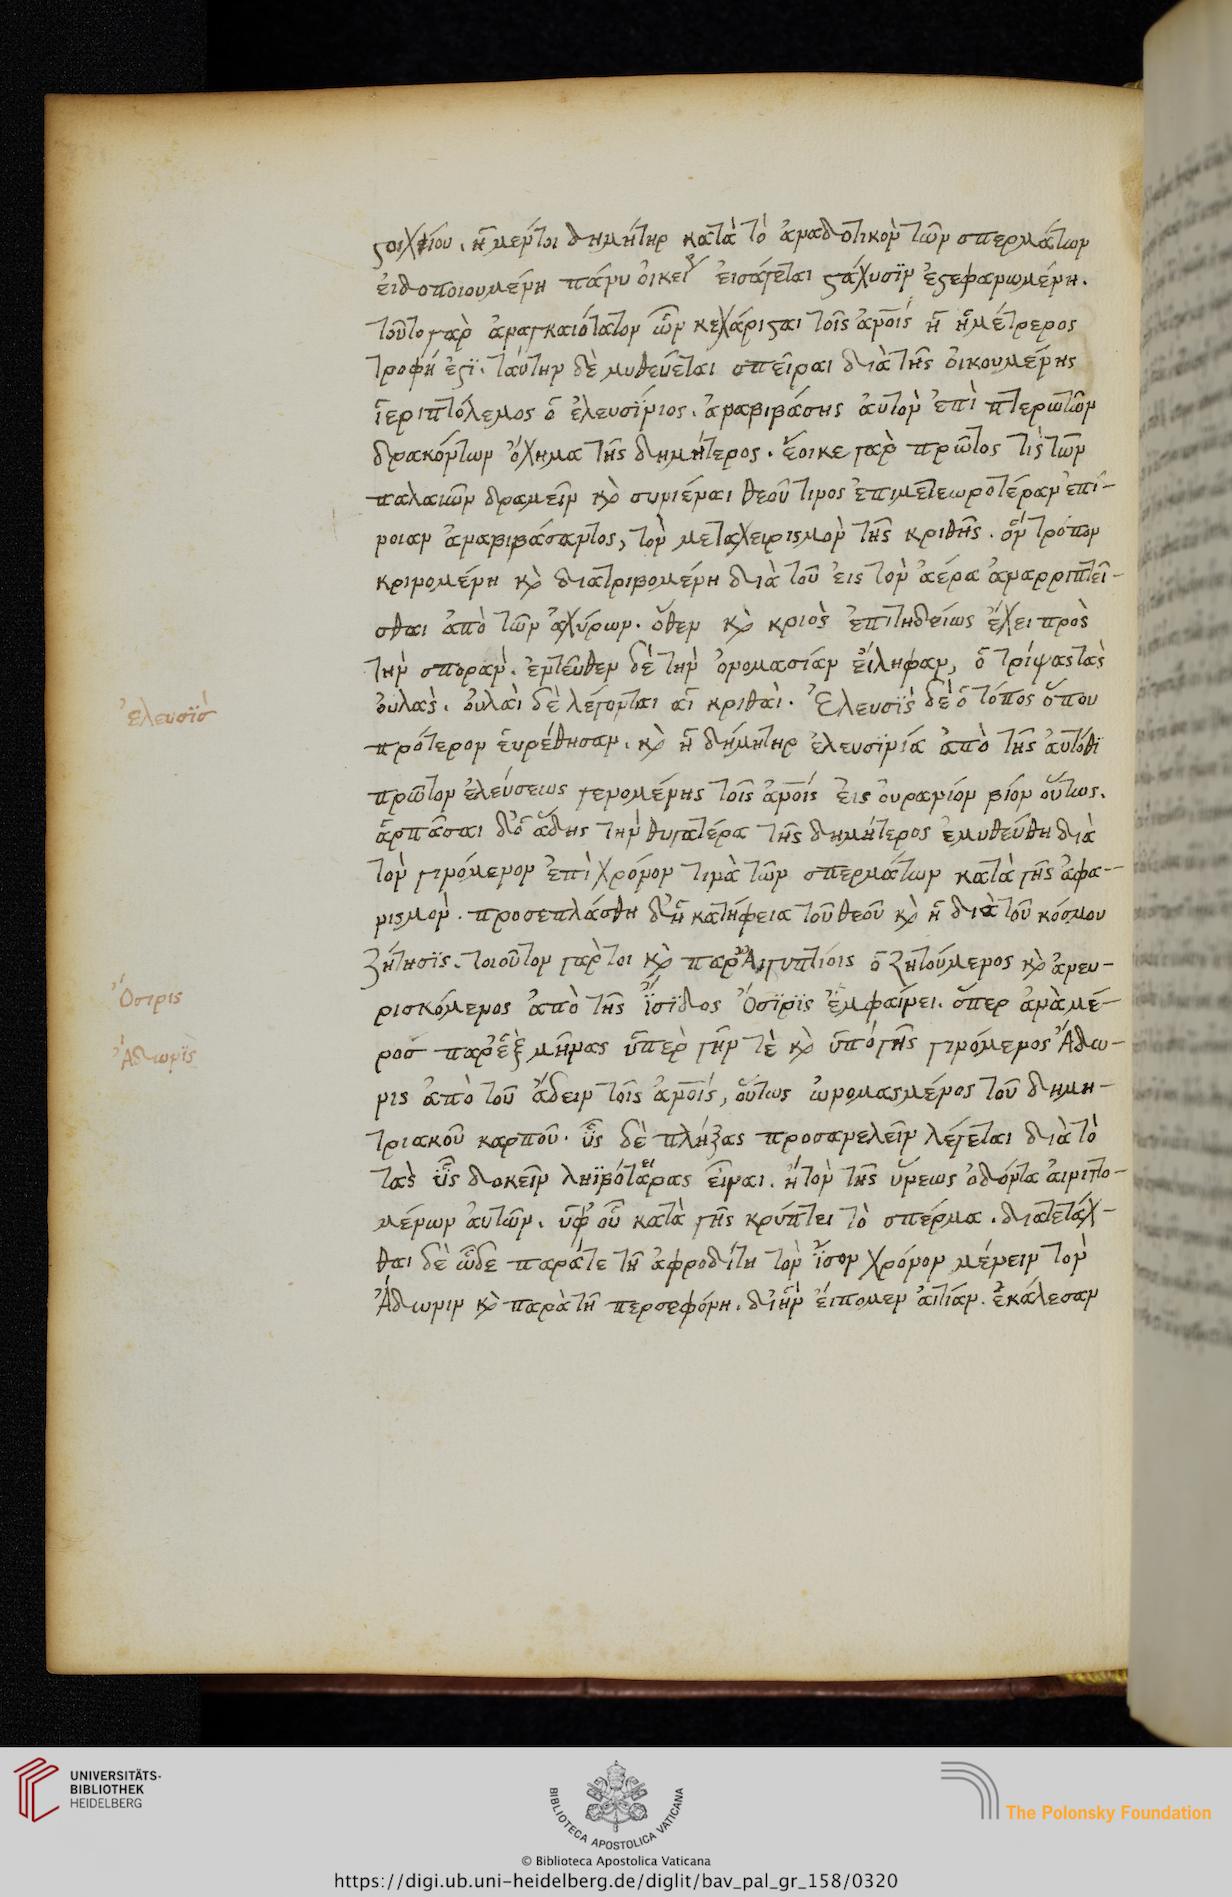 στοιχείου. ἡ μέντοι δημήτηρ κατὰ τὸ ἀναδοτικὸν τῶν σπερμάτων
εἰδοποιουμένη πάνυ οἰκείως εἰσάγεται στάχυσϊν ἐστεφανωμένη.
τοῦτο γὰρ ἀναγκαιότατον ὧν κεχάρισται τοῖς ἀνοις ἡ ἥμέτρερος
τροφή ἐστϊ. ταύτην δὲ μυθεύεται σπεῖραι διὰ τῆς οἰκουμένης
ἱεριπτόλεμος ὁ ἐλευσίνιος. ἀναβιβάσης αὐτὸν ἐπὶ πτερωτῶν
δρακόντων ὄχημα τῆς δημήτερος. ἔοικε γὰρ πρῶτος τὶς τῶν
παλαιῶν δραμεῖν κὶ συνιέναι θεοῦ τινος ἐπιμετεωροτέραν ἐπί-
νοιαν ἀναβιβάσαντος, τὸν μεταχειρισμὸν τῆς κριθῆς. ὅν τρόπον
κρινομένη κὶ διατριβομένη διὰ τοῦ εἰς τὸν ἀέρα ἀναρριπτεῖ-
σθαι ἀπὸ τῶν ἀχύρων. ὅθεν κὶ κριὸς ἐπιτηδείως ἔχει πρὸς
τὴν σπορὰν. ἐντεῦθεν δὲ τὴν ὀνομασίαν εἴληφαν, ὁ τρίψας τὰς
οὐλὰς. οὐλαὶ δὲ λέγονται αἱ κριθαὶ. Ἐλευσϊς δὲ ὁ τόπος ὅπου
Ἐλευσϊσ
πρότερον εὑρέθησαν. κὶ ἡ δήμητηρ ἐλευσϊνία ἀπὸ τῆς αὐτόθϊ
πρῶτον ἐλεύσεως γενομένης τοῖς ἀνοις εἰς οὐρανίον βίον οὕτως.
ἁρπᾶσαι δ' ὁ ἅδης τὴν θυγατέρα τῆς δημήτερος ἐμυθεύθη διὰ
τὸν γινόμενον ἐπὶ χρόνον τινὰ τῶν σπερμάτων κατὰ γῆς ἀφα-
νισμὸν. προσεπλάσθη δ' ἡ κατήφεια τοῦ θεοῦ κὶ ἡ διὰ τοῦ κόσμου
ζήτησϊς. τοιοῦτον γὰρ τοι κὶ παρ' Αἰγυπτίοις ὁ ζητούμενος κὶ ἀνευ-
Ὄσιρις
ρισκόμενος ἀπὸ τῆς ἴσϊδος Ὄσϊρϊς ἐμφαίνει. ὅπερ ἀνὰ μέ-
Ἀδωνϊς
ρος παρ' ἓξ μῆνας ὑπὲρ γῆν τὲ κὶ ὑπὸ γῆς γινόμενος Ἄδω-
νις ἀπὸ τοῦ ἅδειν τοῖς ἀνοις, οὕτως ὠνομασμένος τοῦ δημη-
τριακοῦ καρποῦ. ὗς δὲ πλήξας προσανελεῖν λέγεται διὰ τὸ
τὰς ὗς δοκεῖν ληϊβότειρας εἶναι. ἢ τὸν τῆς ὕνεως ὀδόντα αἰνιπτο-
μένων αὐτῶν. ὑφ' οὗ κατὰ γῆς κρύπτει τὸ σπέρμα. διατετάχ-
θαι δὲ ὧδε παράτε τῆ ἀφροδίτη τὸν ἴσον χρόνον μένειν τὸν
Ἄδωνιν κὶ παρὰ τῆ περσεφόνη. δι' ἣν εἴπομεν αἰτίαν. ἐκάλεσαν
UNIVERSITÄTS-
BIBLIOTHEK
HEIDELBERG
BIBLIOTECA APOSTOLICA VATICANA
The Polonsky Foundation
© Biblioteca Apostolica Vaticana
https://digi.ub.uni-heidelberg.de/diglit/bav_pal_gr_158/0320